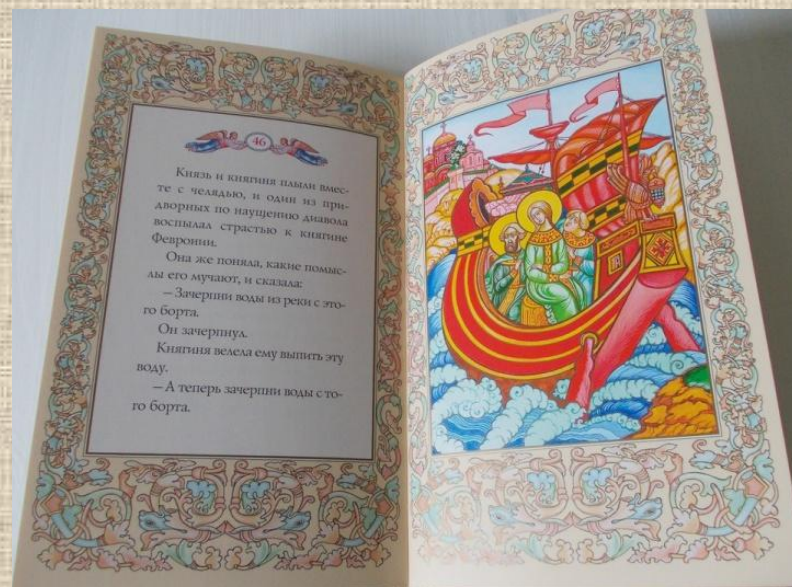 46
Князь и княгиня плыли вмес-
те с челядью, и один из при-
дворных по наущению диавола
воспылал страстью к княгине
Февронии.
Она же поняла, какие помыс-
лы его мучают, и сказала:
—Зачерпни воды из реки с это-
го борта.
Он зачерпнул.
Княгиня велела ему выпить эту
воду.
—А теперь зачерпни воды с то-
го борта.